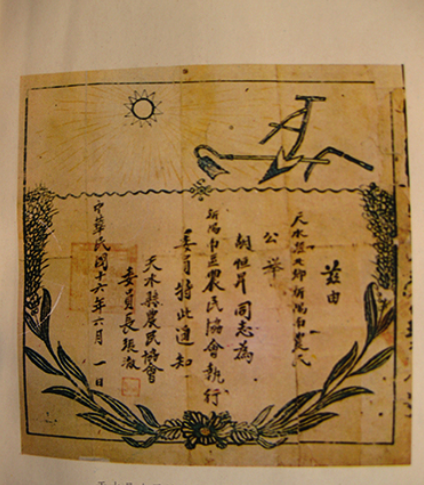 茲由
天水縣北鄉新陽南農民
公举
胡恒昇同志為
新陽南區農民協會執行
委員特此通知
天水縣農民協會
委員長張
中華民國十六年六月一日